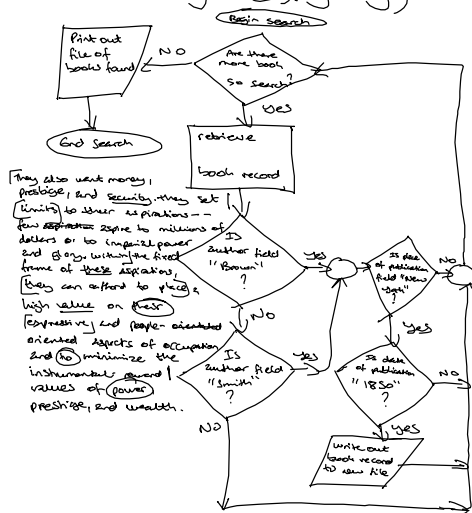 Begin search
Print out
file of
books found
NO
Are there
more book
so search?
Yes
End Search
retrieve
book record
They also want money,
prestige, and security. they set
limits to their aspirations --
few aspiration aspire to millions of
dollars or to imperial power
and glory, within the fixed
frame of these aspirations,
they can afford to place a
high value on their
expressive and people-orientated
oriented aspects of occupation
and no minimize the
instrumental reward
values of power
prestige, and wealth.
Is
author field
"Brown"
?
Yes
NO
Is date
of publication
field "New
York"
?
No
Yes
Is
author field
"Smith"
?
Yes
NO
Is date
of publication
"1850"
?
NO
Yes
write out
book record
to new file